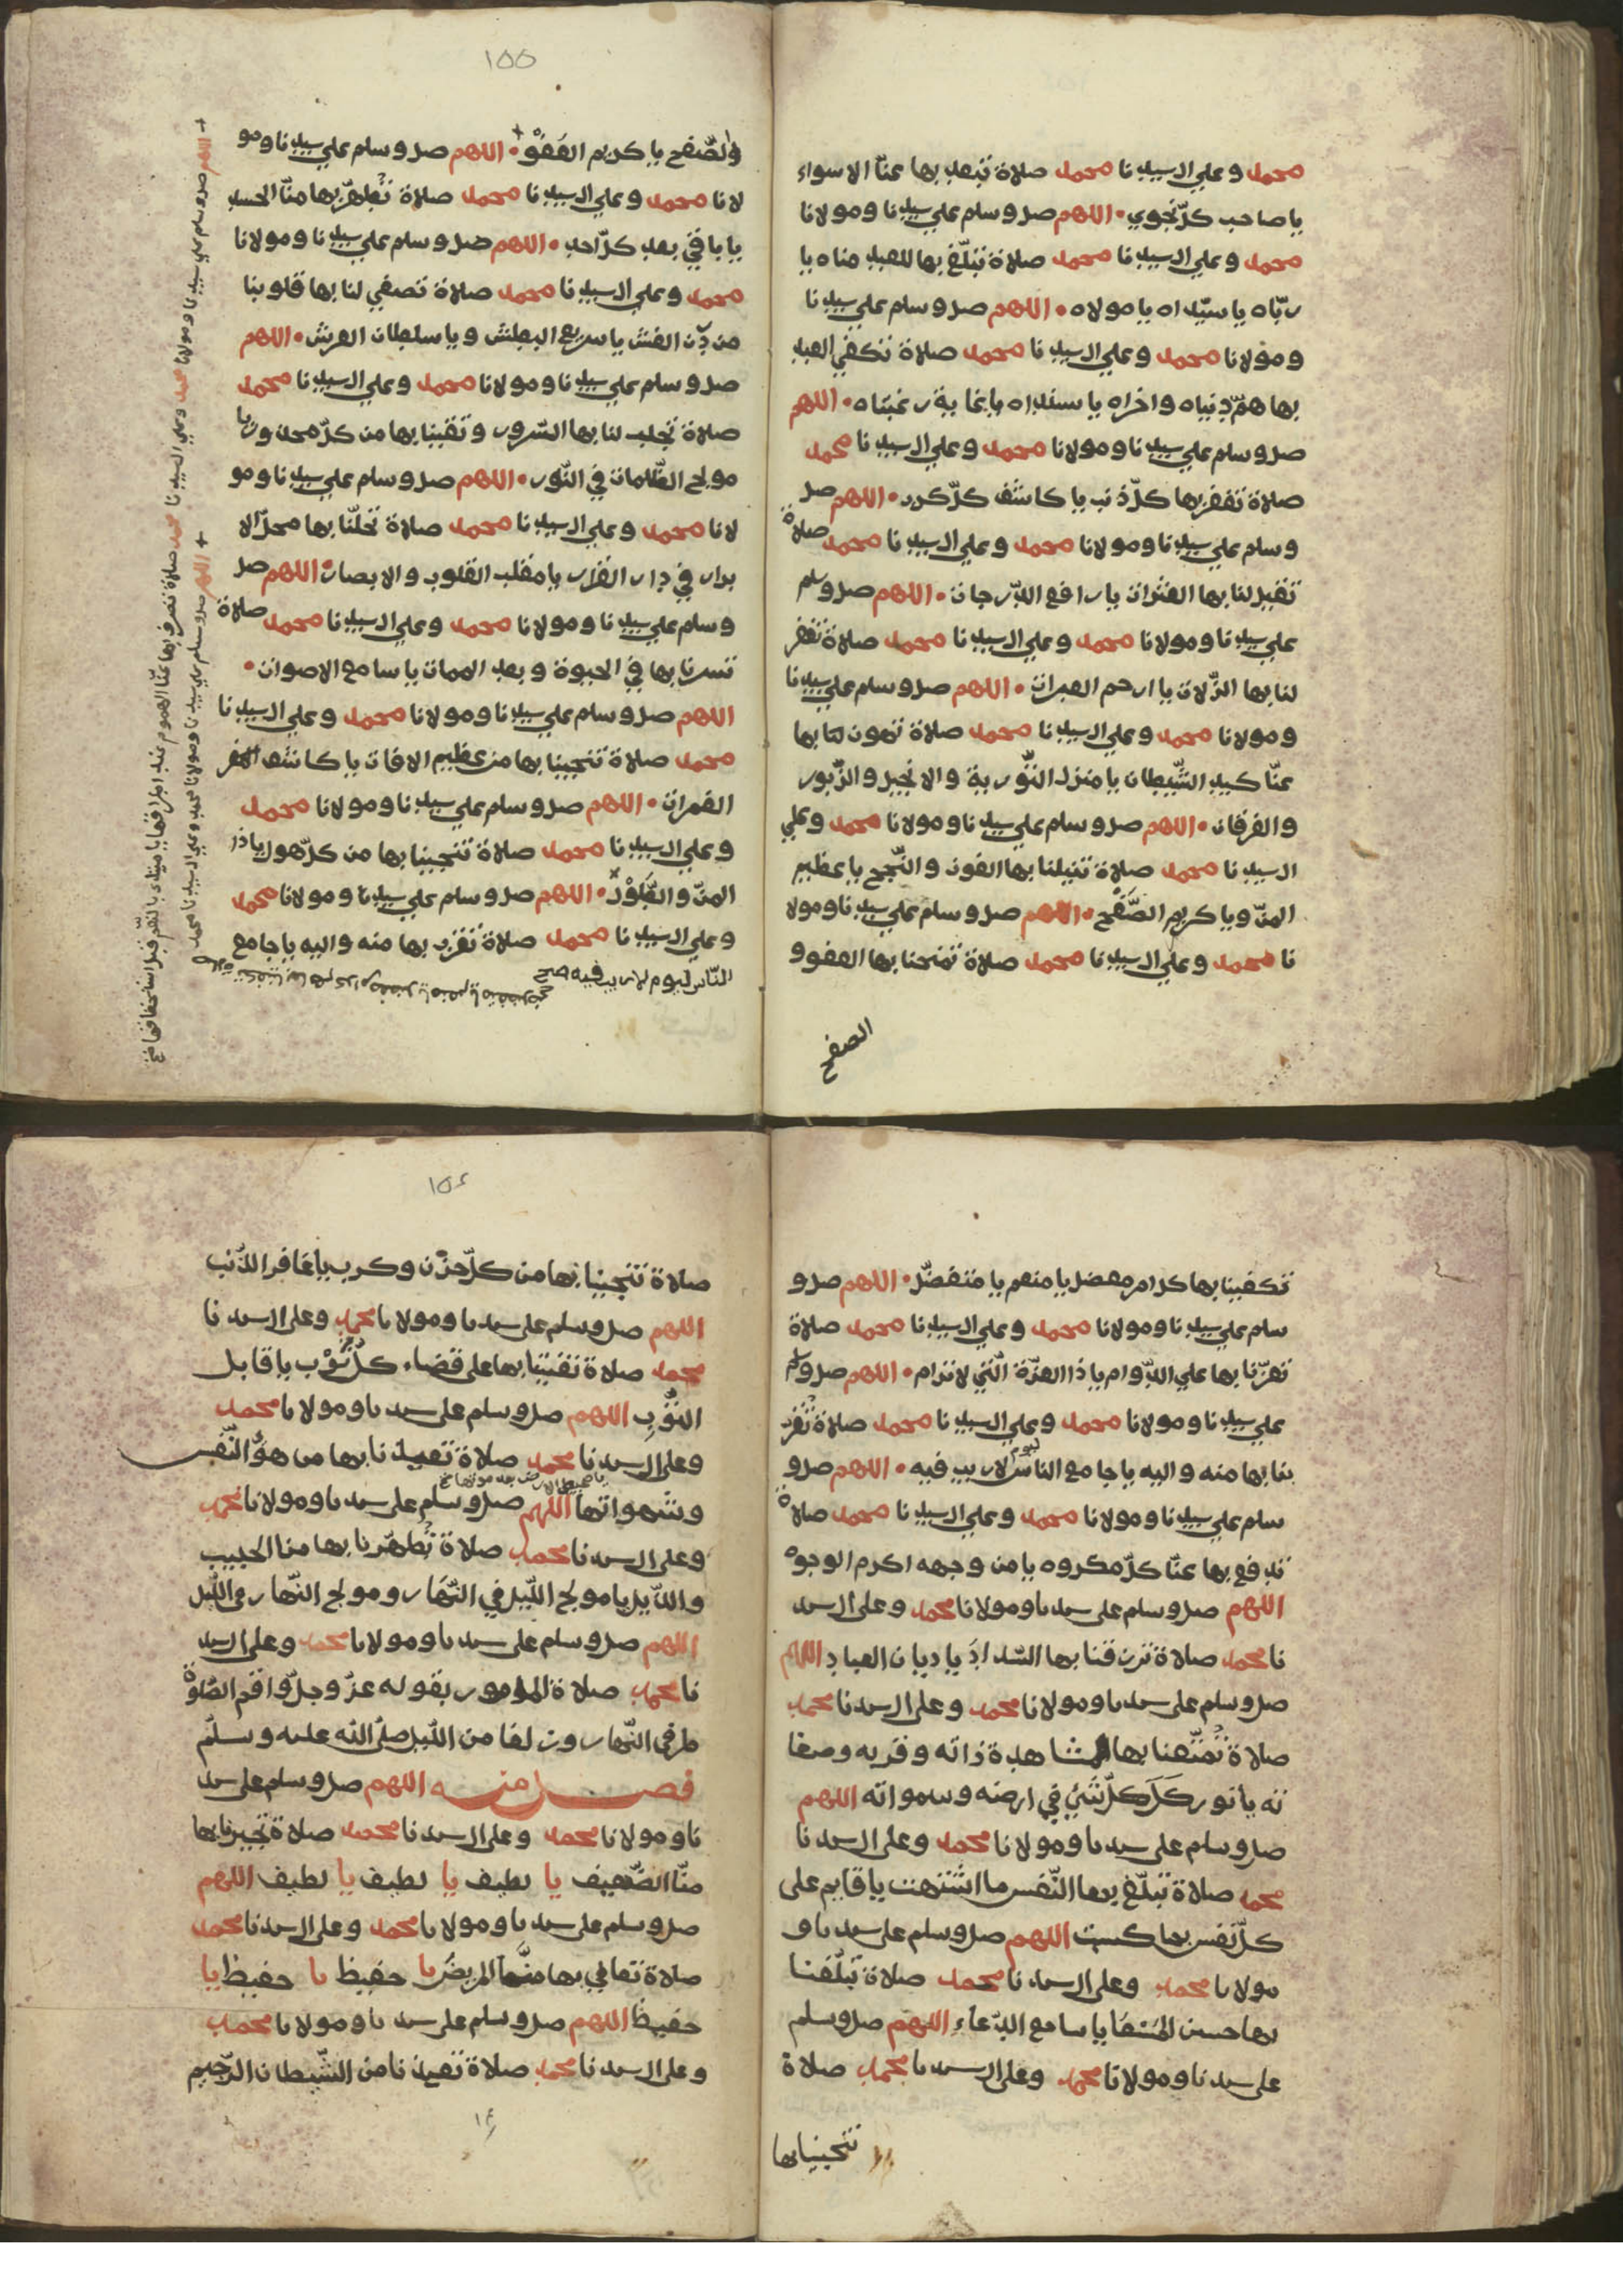 محمد وعلي ال سيدنا محمد صلاة تبعد بها عنّا الاسواء
يا صاحب كلّ نجوي • اللهم صل وسلم علي سيدنا ومولانا
محمد وعلي ال سيدنا محمد صلاة تبلّغ بها للعبد مناه يا
ربّاه يا سيّداه يا مولاه • اللهم صل وسلم علي سيدنا
ومولانا محمد وعلي ال سيدنا محمد صلاة تكفي العبد
بها همّ دنياه واخراه يا سنداه يا غاية رغبتاه • اللهم
صل وسلم علي سيدنا ومولانا محمد وعلي ال سيدنا محمد
صلاة تغفر بها كلّ ذنب يا كاشف كلّ كرب • اللهم صل
وسلم علي سيدنا ومولانا محمد وعلي ال سيدنا محمد صلاة
تقيل لنا بها العثرات يا رافع الدّرجات • اللهم صل وسلم
علي سيدنا ومولانا محمد وعلي ال سيدنا محمد صلاة تغفر
لنا بها الزّلات يا ارحم العبرات • اللهم صل وسلم علي سيدنا
ومولانا محمد وعلي ال سيدنا محمد صلاة تهون لنا بها
عنّا كيد الشّيطان يا منزل التّورية والانجيل والزّبور
والفرقان • اللهم صل وسلم علي سيدنا ومولانا محمد وعلي
ال سيدنا محمد صلاة تنيلنا بها الفوز والنّجح يا عظيم
المنّ ويا كريم الصّفح • اللهم صل وسلم علي سيدنا ومولا
نا محمد وعلي ال سيدنا محمد صلاة تمنحنا بها العفو و
الصفح
١٥٥
والصّفح يا كريم العفو • اللهم صل وسلم علي سيدنا ومو
لانا محمد وعلي ال سيدنا محمد صلاة تطهّر بها منّا الحسد
يا باقي بعد كلّ احد • اللهم صل وسلم علي سيدنا ومولانا
محمد وعلي ال سيدنا محمد صلاة تصفي لنا بها قلوبنا
من درن الغش يا سريع البطش ويا سلطان العرش • اللهم
صل وسلم علي سيدنا ومولانا محمد وعلي ال سيدنا محمد
صلاة تجلب لنا بها السّرور وتقينا بها من كلّ محذور يا
مولج الظّلمات في النّور • اللهم صل وسلم علي سيدنا ومو
لانا محمد وعلي ال سيدنا محمد صلاة تحلّنا بها محلّ الا
برار في دار القرار يا مقلب القلوب والابصار • اللهم صل
وسلم علي سيدنا ومولانا محمد وعلي ال سيدنا محمد صلاة
تسرنا بها في الحيوة وبعد الممات يا سامع الاصوات •
اللهم صل وسلم علي سيدنا ومولانا محمد وعلي ال سيدنا
محمد صلاة تنجينا بها من عظيم الافات يا كاشف
الغمرات • اللهم صل وسلم علي سيدنا ومولانا محمد
وعلي ال سيدنا محمد صلاة تنجينا بها من كلّ هول يا ذا
المنّ والطّول • اللهم صل وسلم علي سيدنا ومولانا محمد
وعلي ال سيدنا محمد صلاة تقرب بها منه واليه يا جامع
النّاس ليوم لا ريب فيه صح
اللهم صل وسلم علي سيدنا ومولانا محمد وعلي ال سيدنا محمد صلاة تصرف بها عنّا الهموم
اللهم صل وسلم علي سيدنا ومولانا محمد وعلي ال سيدنا محمد صلاة
تكفينا بها كل امر معضل يا منعم يا متفضّل • اللهم صل و
سلم علي سيدنا ومولانا محمد وعلي ال سيدنا محمد صلاة
تعزّنا بها علي الدّوام يا ذا العزّة الّتي لا ترام • اللهم صل وسلم
علي سيدنا ومولانا محمد وعلي ال سيدنا محمد صلاة تقر
بنا بها منه واليه يا جامع الناس ليوم لا ريب فيه • اللهم صل و
سلم علي سيدنا ومولانا محمد وعلي ال سيدنا محمد صلاة
تدفع بها عنّا كلّ مكروه يا من وجهه اكرم الوجوه
اللهم صل وسلم على سيدنا ومولانا محمد وعلى ال سيد
نا محمد صلاة ترزقنا بها السّداد يا ديان العباد اللهم
صل وسلم على سيدنا ومولانا محمد وعلى ال سيدنا محمد
صلاة تمتّعنا بها بمشاهدة ذاته وقربه وصفا
ته يا نور كلّ شيء في ارضه وسمواته اللهم
صل وسلم على سيدنا ومولانا محمد وعلى ال سيدنا
محمد صلاة تبلّغ بها النّفس ما اشتهت يا قايم على
كلّ نفس بما كسبت اللهم صل وسلم على سيدنا و
مولانا محمد وعلى ال سيدنا محمد صلاة تبلّغنا
بها حسن المسعا يا سامع الدّعاء اللهم صل وسلم
على سيدنا ومولانا محمد وعلى ال سيدنا محمد صلاة
تنجينا بها
١٥٤
صلاة تنجينا بها من كلّ حزن وكرب يا غافر الذّنب
اللهم صل وسلم على سيدنا ومولانا محمد وعلى ال سيدنا
محمد صلاة تعيننا بها على قضاء كلّ يا قابل
التّوب اللهم صل وسلم على سيدنا ومولانا محمد
وعلى ال سيدنا محمد صلاة تعيذنا بها من هوى النّفس
يا محيي الارض بعد موتها صح
وشهواتها اللهم صل وسلم على سيدنا ومولانا محمد
وعلى ال سيدنا محمد صلاة تطهّرنا بها من
يا مولج اللّيل في النّهار ومولج النّهار في اللّيل
اللهم صل وسلم على سيدنا ومولانا محمد وعلى ال سيد
نا محمد صلاة المامور بقوله عزّ وجلّ واقم الصّلوة
طرفي النّهار وزلفا من اللّيل صلّى الله عليه وسلّم
فصل منه اللهم صل وسلم على سيد
نا ومولانا محمد وعلى ال سيدنا محمد صلاة تجبر بها
منّا الضّعيف يا لطيف يا لطيف يا لطيف اللهم
صل وسلم على سيدنا ومولانا محمد وعلى ال سيدنا محمد
صلاة تعافي بها منّا المريض يا حفيظ يا حفيظ يا
حفيظ اللهم صل وسلم على سيدنا ومولانا محمد
وعلى ال سيدنا محمد صلاة تعيذنا من الشّيطان الرّجيم